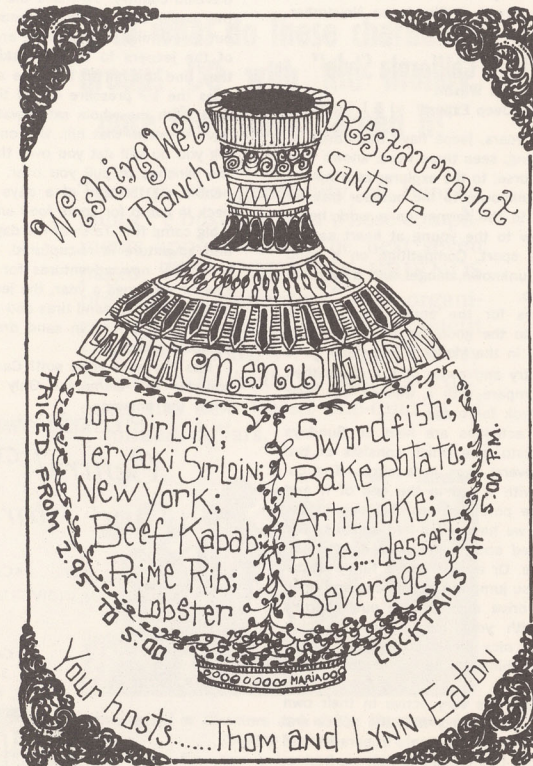 Wishing Well Restaurant
IN Rancho Santa Fe
Menu
Top Sirloin;
Teryaki Sirloin;
New York;
Beef Kabab;
Prime Rib;
Lobster
Swordfish;
Bake potato;
Artichoke;
Rice;...dessert
Beverage
PRICED FROM 2.95 TO 5.00
COCKTAILS AT 5:00 P.M.
MARIA
Your hosts......Thom and Lynn Eaton